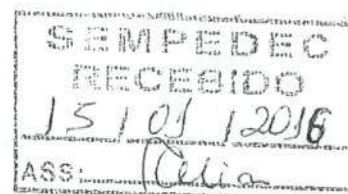 SEMPEDEC
RECEBIDO
15 / 01 / 2016
ASS: Célia